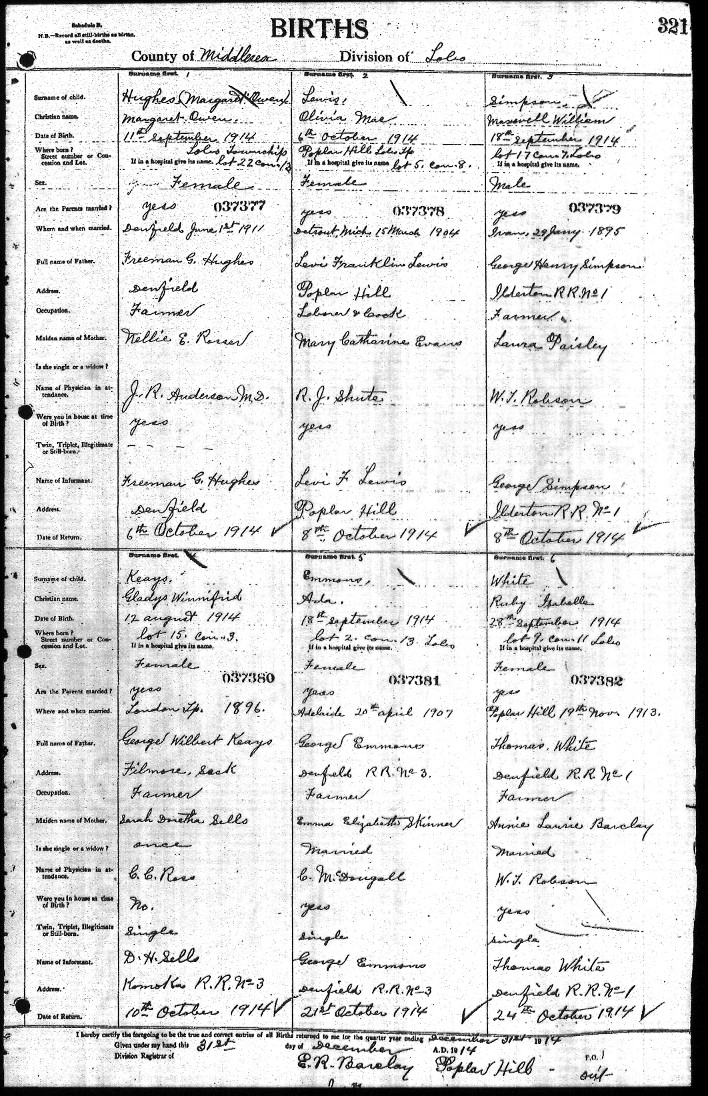 Schedule B.
N.B.—Record all still-births as births, as well as deaths.
BIRTHS
321
County of Middlesex Division of Lobo
Surname first. 1 Surname first. 2 Surname first. 3
Surname of child. Hughes (Margaret Owen) Lewis, Simpson,
Christian name. Margaret Owen. Olivia Mae Maxwell William
Date of Birth. 11th September 1914 6th October 1914 18th September 1914
Where born? Lobo Township Poplar Hill Lobo Tp lot 17 con 7 Lobo
Street number or Concession and Lot. If in a hospital give its name. lot 22 con 12 If in a hospital give its name. lot 5. con. 8. If in a hospital give its name.
Sex. Female Female Male
037377 037378 037379
Are the Parents married? yess yess yess
Where and when married. Denfield June 1st 1911 Detroit, Mich. 15 March 1904 Ivan, 29 Jany 1895
Full name of Father. Freeman G. Hughes Levi Franklin Lewis George Henry Simpson
Address. Denfield Poplar Hill Ilderton R.R. No 1
Occupation. Farmer Laborer & Cook Farmer.
Maiden name of Mother. Nellie E. Rosser Mary Catharine Evans Laura Paisley
Is she single or a widow?
Name of Physician in attendance. J. R. Anderson M.D. R. J. Shute W. T. Robson
Were you in house at time of Birth? yess yess yess
Twin, Triplet, Illegitimate or Still-born. - - -
Name of Informant. Freeman G. Hughes Levi F Lewis George Simpson
Address. Denfield Poplar Hill Ilderton R.R. No 1
Date of Return. 6th October 1914 8th October 1914 8th October 1914
Surname first. 4 Surname first. 5 Surname first. 6
Surname of child. Keays. Emmons, White
Christian name. Gladys Winnifrid Ada. Ruby Isabella
Date of Birth. 12 august 1914 18th September 1914 28th September 1914
Where born? lot 15. con. 3. lot 2. con. 13 Lobo lot 9. con 11 Lobo
Street number or Concession and Lot. If in a hospital give its name. If in a hospital give its name. If in a hospital give its name.
Sex. Female Female Female
037380 037381 037382
Are the Parents married? yess yess yes
Where and when married. London Tp. 1896. Adelaide 20th april 1907 Poplar Hill 19th Nov. 1913.
Full name of Father. George Wilbert Keays George Emmons Thomas. White
Address. Filmore, Sask Denfield R R. No 3. Denfield R.R. No 1
Occupation. Farmer Farmer Farmer
Maiden name of Mother. Sarah Doretha Sells Emma Elizabeth Skinner Annie Laurie Barclay
Is she single or a widow? once Married Married
Name of Physician in attendance. C. C. Ross C. McDougall W. T. Robson
Were you in house at time of Birth? No. yess yess
Twin, Triplet, Illegitimate or Still-born. Single single single
Name of Informant. D. H. Sells George Emmons Thomas White
Address. Komoka R.R. No 3 Denfield R.R. No 3 Denfield R.R. No 1
Date of Return. 10th October 1914 21st October 1914 24th October 1914
I hereby certify the foregoing to be the true and correct entries of all Births returned to me for the quarter year ending December 31st 1914
Given under my hand this 31st day of December A.D. 1914
Division Registrar of E. R. Barclay Poplar Hill P.O.
Ont